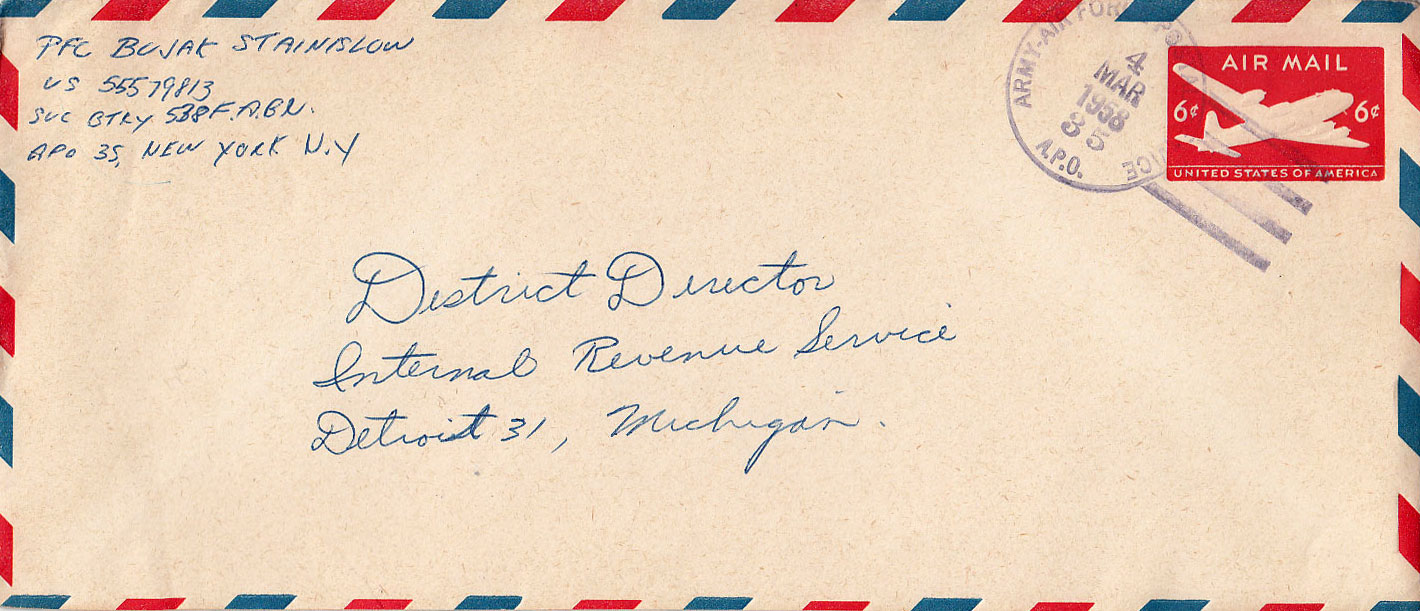 PFC BUJAK STAINISLOW
US 55579813
SVC BTRY 538 F.A.BN.
APO 35, NEW YORK N.Y
ARMY-AIR FORCE
4
MAR
1958
35
A.P.O.
AIR MAIL
6¢ 6¢
UNITED STATES OF AMERICA
District Director
Internal Revenue Service
Detroit 31, Michigan.